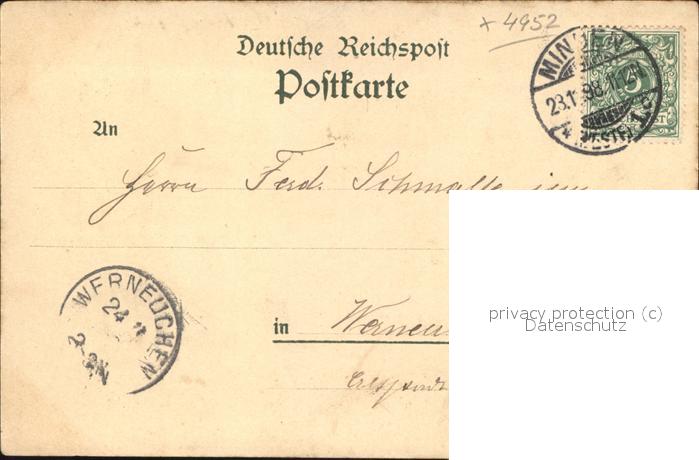 x 4952
Deutsche Reichspost
Postkarte
MINDEN
23.1 98.11-12N
(WESTF) 1 c
An
Herrn Ferd. Schmalle jun
privacy protection (c)
Datenschutz
WERNEUCHEN
24 11
2-3N
in Werneu